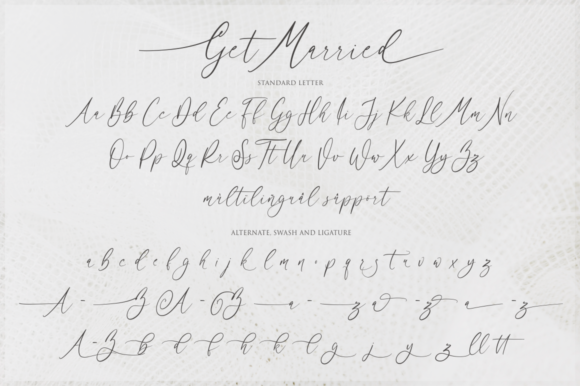 Get Married
STANDARD LETTER
Aa Bb Cc Dd Ee Ff Gg Hh Ii Jj Kk Ll Mm Nn
Oo Pp Qq Rr Ss Tt Uu Vv Ww Xx Yy Zz
múltilinguál sůppórt
ALTERNATE, SWASH AND LIGATURE
a b c d e f g h i j k l m n o p q r s t u v w x y z
A - Z A - Z a - z a - z a - z
A - Z b d f h k l g j y z ll tt